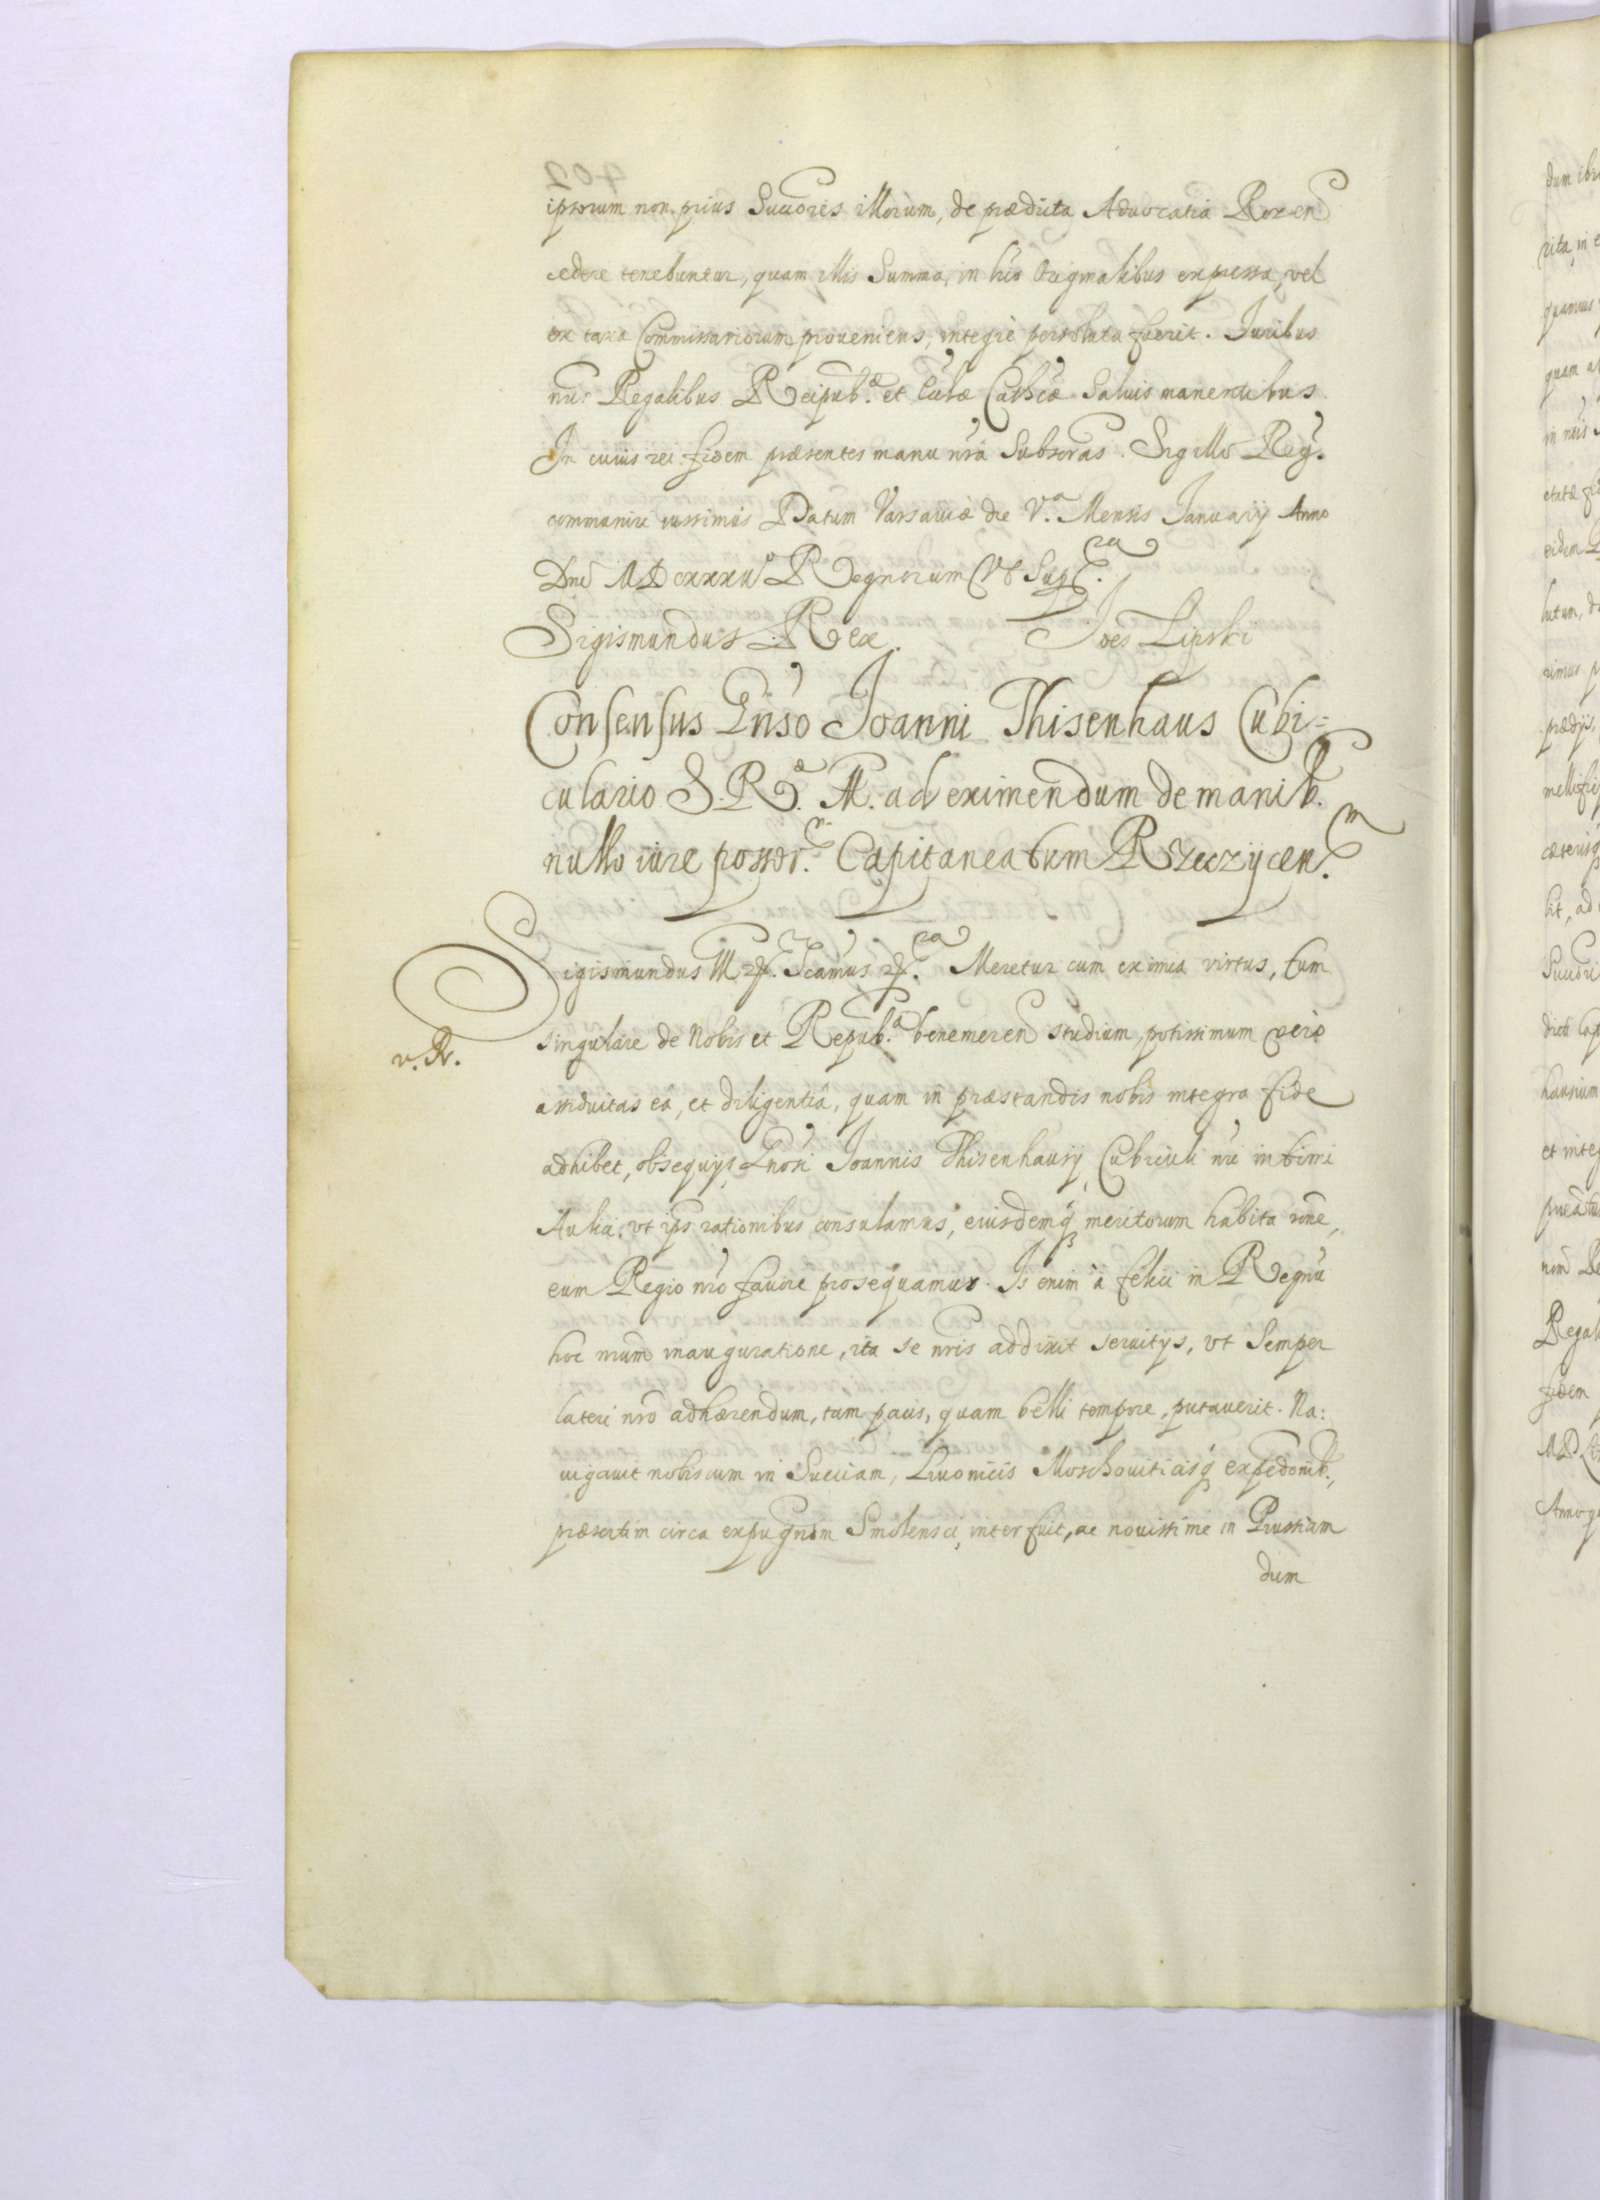 ipsorum non prius Succores illorum, de prædicta Advocatia Rozen
cedere tenebuntur, quam illis Summa, in hris Originalibus expressa, vel
ex taxa Commissariorum proveniens, integrè persoluta fuerit. Juribus
nris Regalibus Reipub. et Ecclæ Cathcæ Saluis manentibus.
In cuius rei fidem præsentes manu nrâ Subscras. Sigillo Reg.
communire iussimus Datum Varsaviæ die V.a Mensis January Anno
Dni Regnorum Vt Supra.
Sigismundus Rex. Joes Lipski
Consensus Gnso Joanni Thisenhaus Cubi=
culario S. R. M. ad eximendum de manib.
nullo iure possor. Capitaneatum Rzeczycen.
Sigismundus III Meretur cum eximia virtus, tum
singulare de Nobis et Repub.a benemeren studium, potissimum vero
v. R.
assiduitas ea, et diligentiâ, quam in præstandis nobis integra fide
adhibet, obsequys Gnosi Joannis Thisenhausy Cubiculi nri intimi
Aulici: vt ips rationibus consulamus, eiusdemq meritorum habita rone,
eum Regio nro favore prosequamur. Is enim à felici in Regnu
hoc nrum inauguratione, ita se nris addixit servitys, vt Semper
lateri nro adhærendum, tam pacis, quam belli tempore, putaverit. Na:
uigauit nobiscum in Sueciam, Livonicis Moschouiticisq expedonib.,
præsertim circa expugnom Smolensci, interfuit, ac nouissime in Prussiam
dum